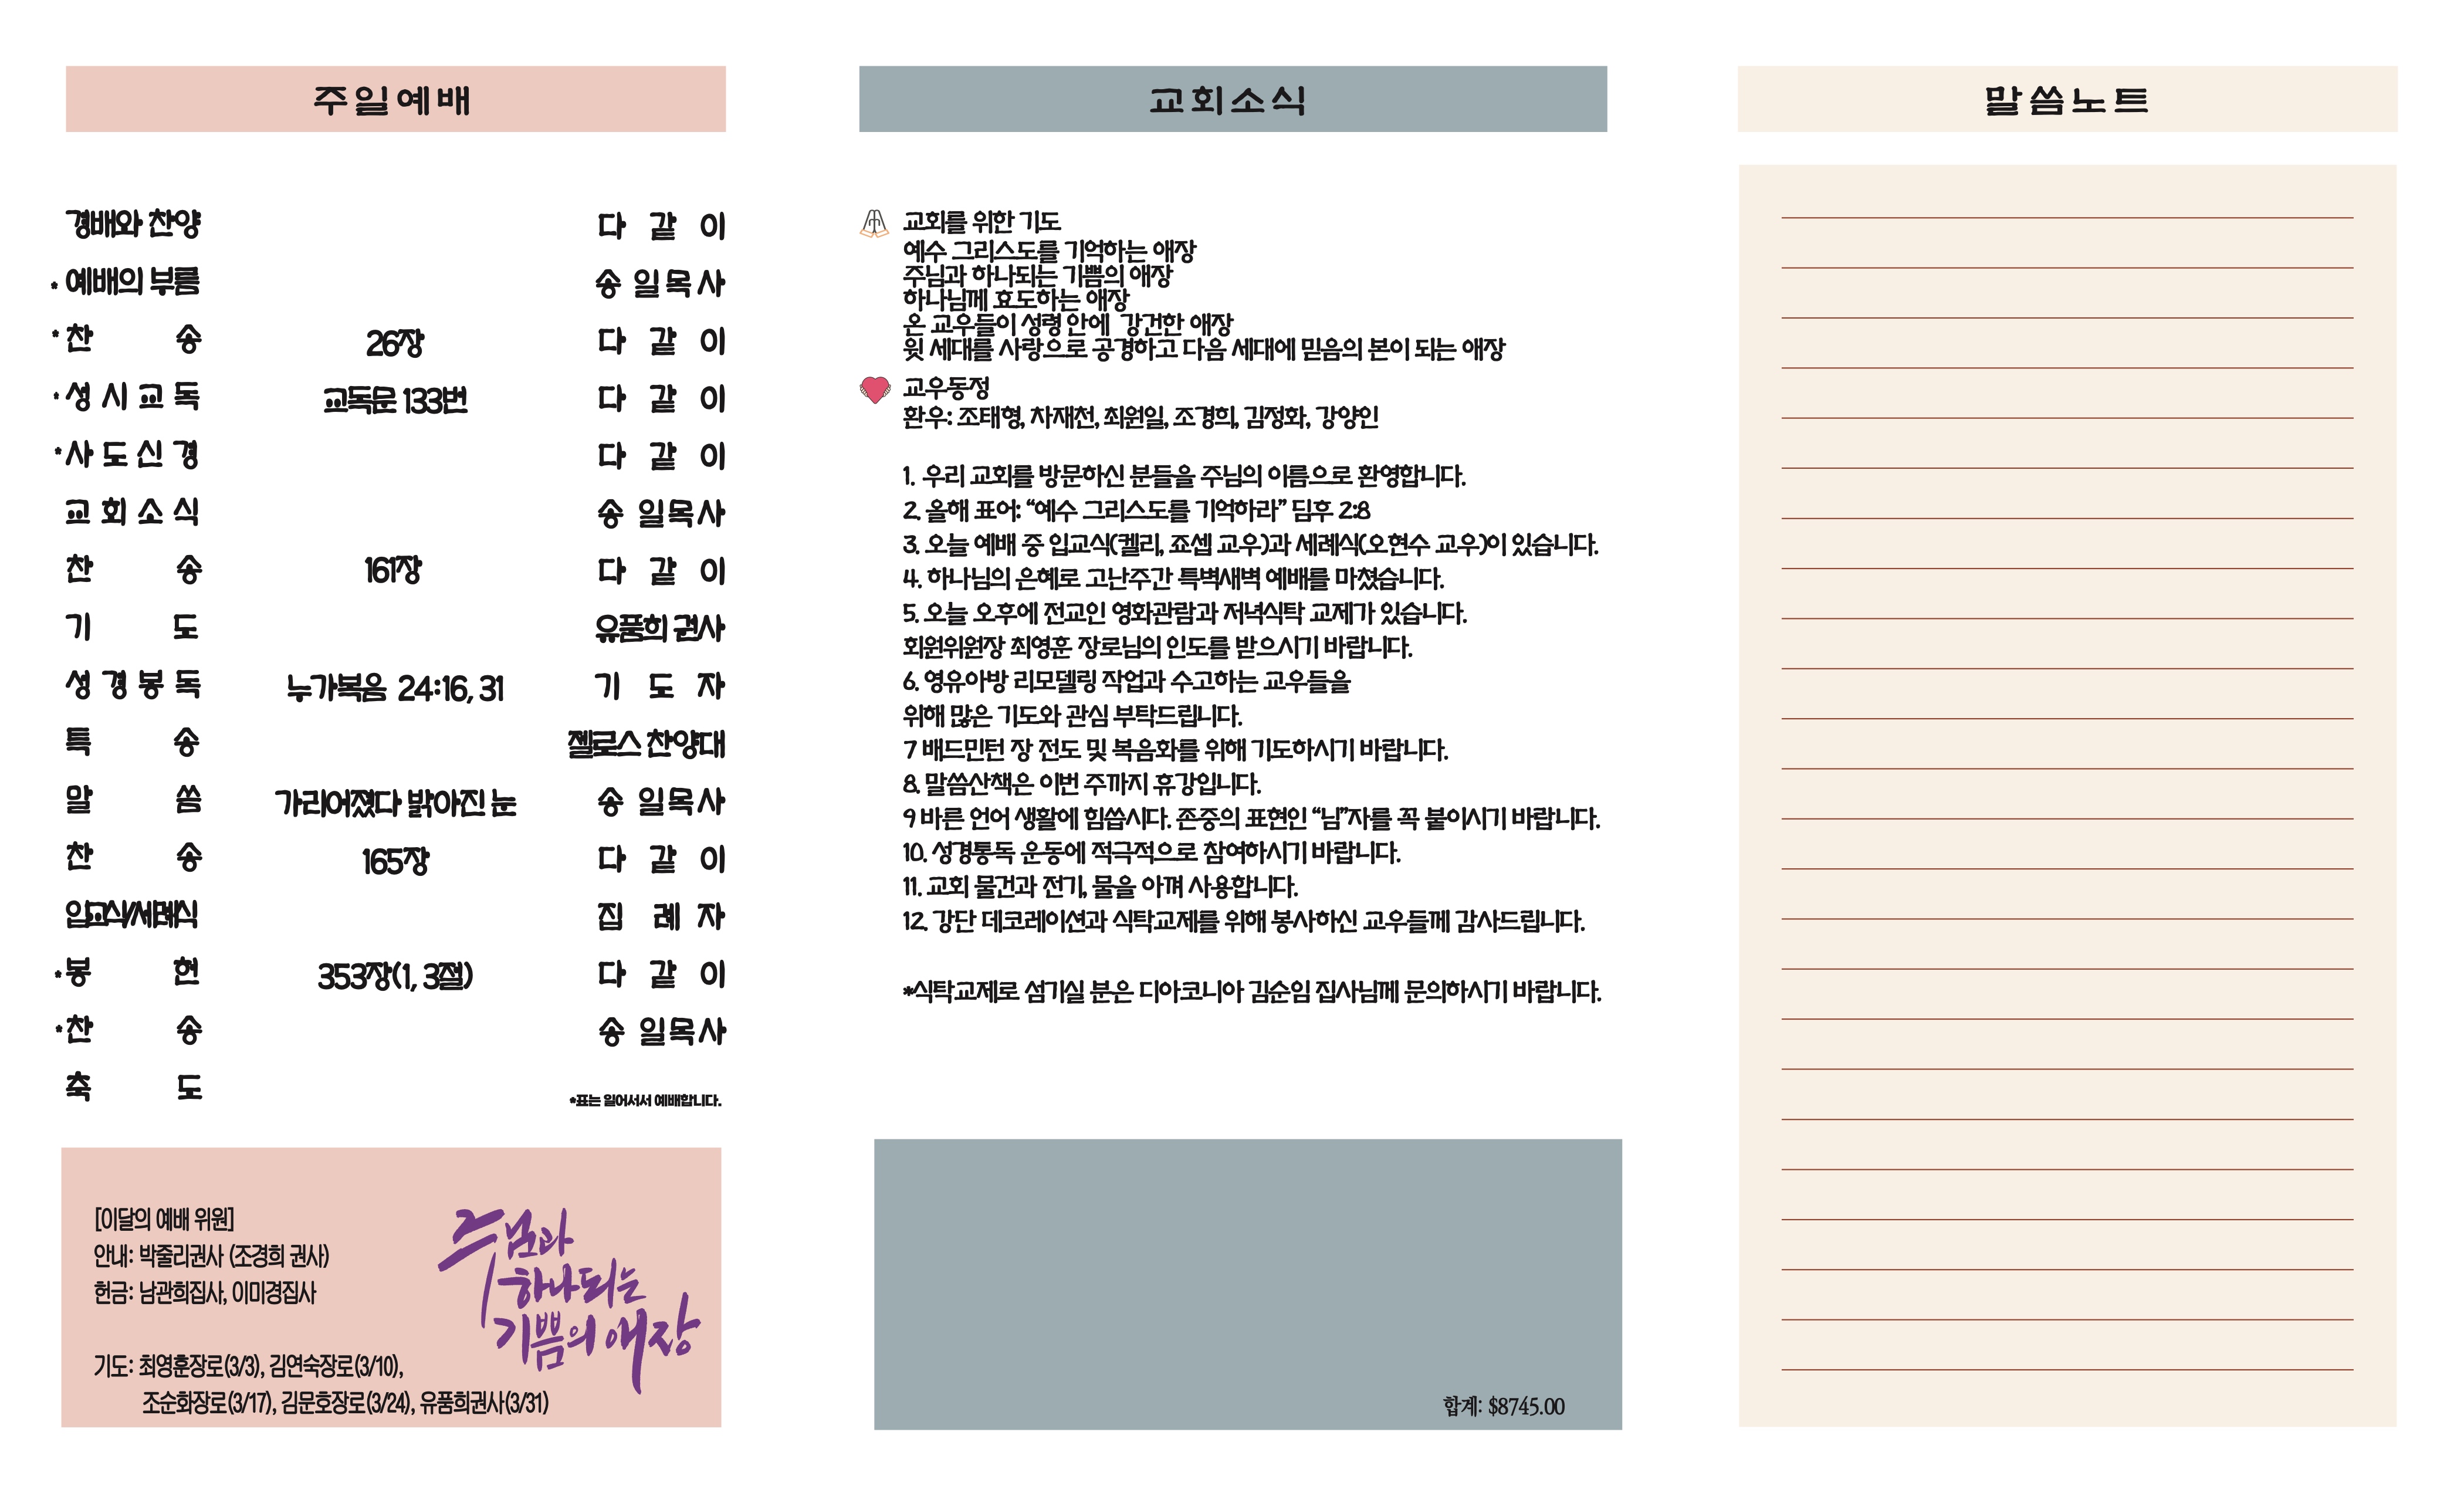 주일예배
경배와 찬양 다 같 이
* 예배의 부름 송 일 목 사
* 찬 송 26장 다 같 이
* 성 시 교 독 교독문 133번 다 같 이
* 사 도 신 경 다 같 이
교 회 소 식 송 일 목 사
찬 송 161장 다 같 이
기 도 유품희 권사
성 경 봉 독 누가복음 24:16, 31 기 도 자
특 송 젤로스 찬양대
말 씀 가리어졌다 밝아진 눈 송 일 목 사
찬 송 165장 다 같 이
입교식/세례식 집 례 자
* 봉 헌 353장(1, 3절) 다 같 이
* 찬 송 송 일 목 사
축 도
*표는 일어서서 예배합니다.
[이달의 예배 위원]
안내: 박줄리권사 (조경희 권사)
헌금: 남관희집사, 이미경집사
기도: 최영훈장로(3/3), 김연숙장로(3/10),
조순화장로(3/17), 김문호장로(3/24), 유품희권사(3/31)
주님과
하나되는
기쁨의 애장
교회소식
교회를 위한 기도
예수 그리스도를 기억하는 애장
주님과 하나되는 기쁨의 애장
하나님께 효도하는 애장
온 교우들이 성령 안에 강건한 애장
윗 세대를 사랑으로 공경하고 다음 세대에 믿음의 본이 되는 애장
교우동정
환우: 조태형, 차재천, 최원일, 조경희, 김정화, 강양인
1. 우리 교회를 방문하신 분들을 주님의 이름으로 환영합니다.
2. 올해 표어: “예수 그리스도를 기억하라” 딤후 2:8
3. 오늘 예배 중 입교식(켈리, 죠셉 교우)과 세례식(오현수 교우)이 있습니다.
4. 하나님의 은혜로 고난주간 특벽새벽 예배를 마쳤습니다.
5. 오늘 오후에 전교인 영화관람과 저녁식탁 교제가 있습니다.
회원위원장 최영훈 장로님의 인도를 받으시기 바랍니다.
6. 영유아방 리모델링 작업과 수고하는 교우들을
위해 많은 기도와 관심 부탁드립니다.
7 배드민턴 장 전도 및 복음화를 위해 기도하시기 바랍니다.
8. 말씀산책은 이번 주까지 휴강입니다.
9 바른 언어 생활에 힘씁시다. 존중의 표현인 “님”자를 꼭 붙이시기 바랍니다.
10. 성경통독 운동에 적극적으로 참여하시기 바랍니다.
11. 교회 물건과 전기, 물을 아껴 사용합니다.
12. 강단 데코레이션과 식탁교제를 위해 봉사하신 교우들께 감사드립니다.
*식탁교제로 섬기실 분은 디아코니아 김순임 집사님께 문의하시기 바랍니다.
합계: $8745.00
말씀노트